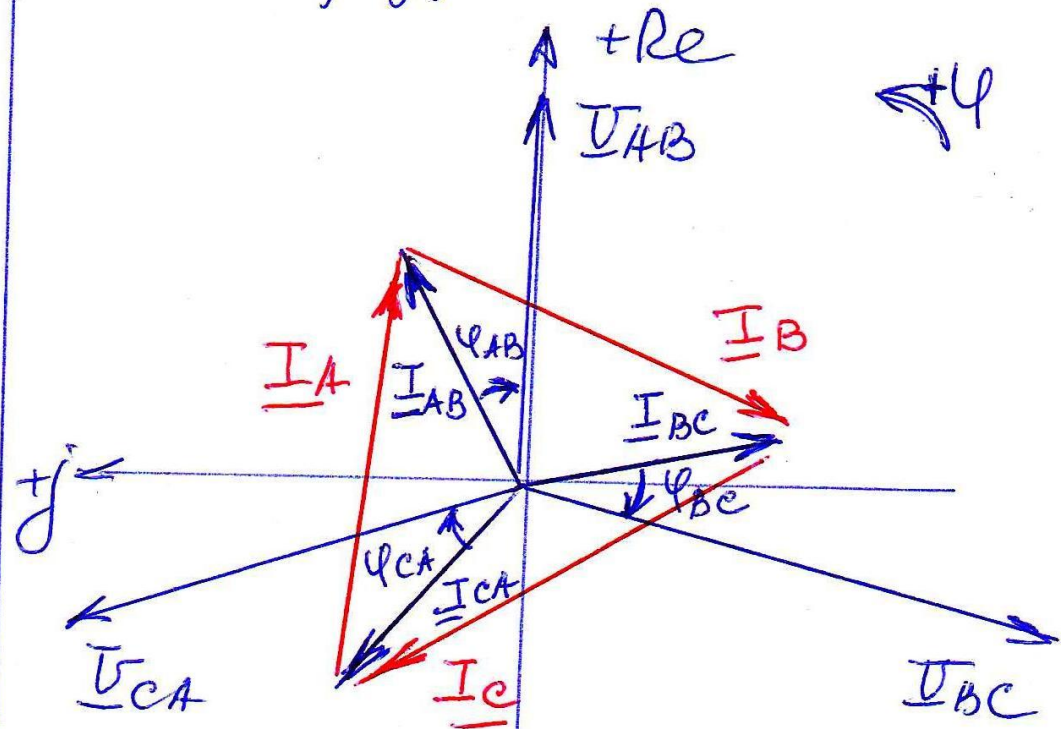 +Re
+φ
U_AB
I_B
φ_AB
I_A
I_AB
I_BC
+j
φ_BC
φ_CA
I_CA
U_CA
I_C
U_BC